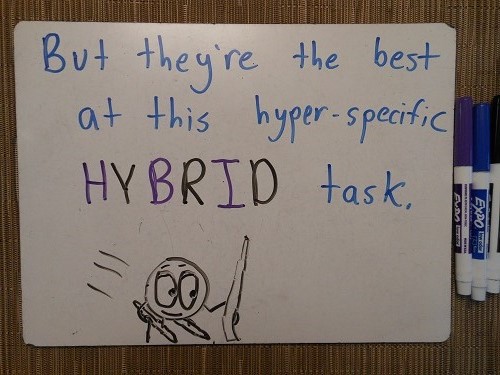 But they're the best
at this hyper-specific
HYBRID task.
EXPO
EXPO